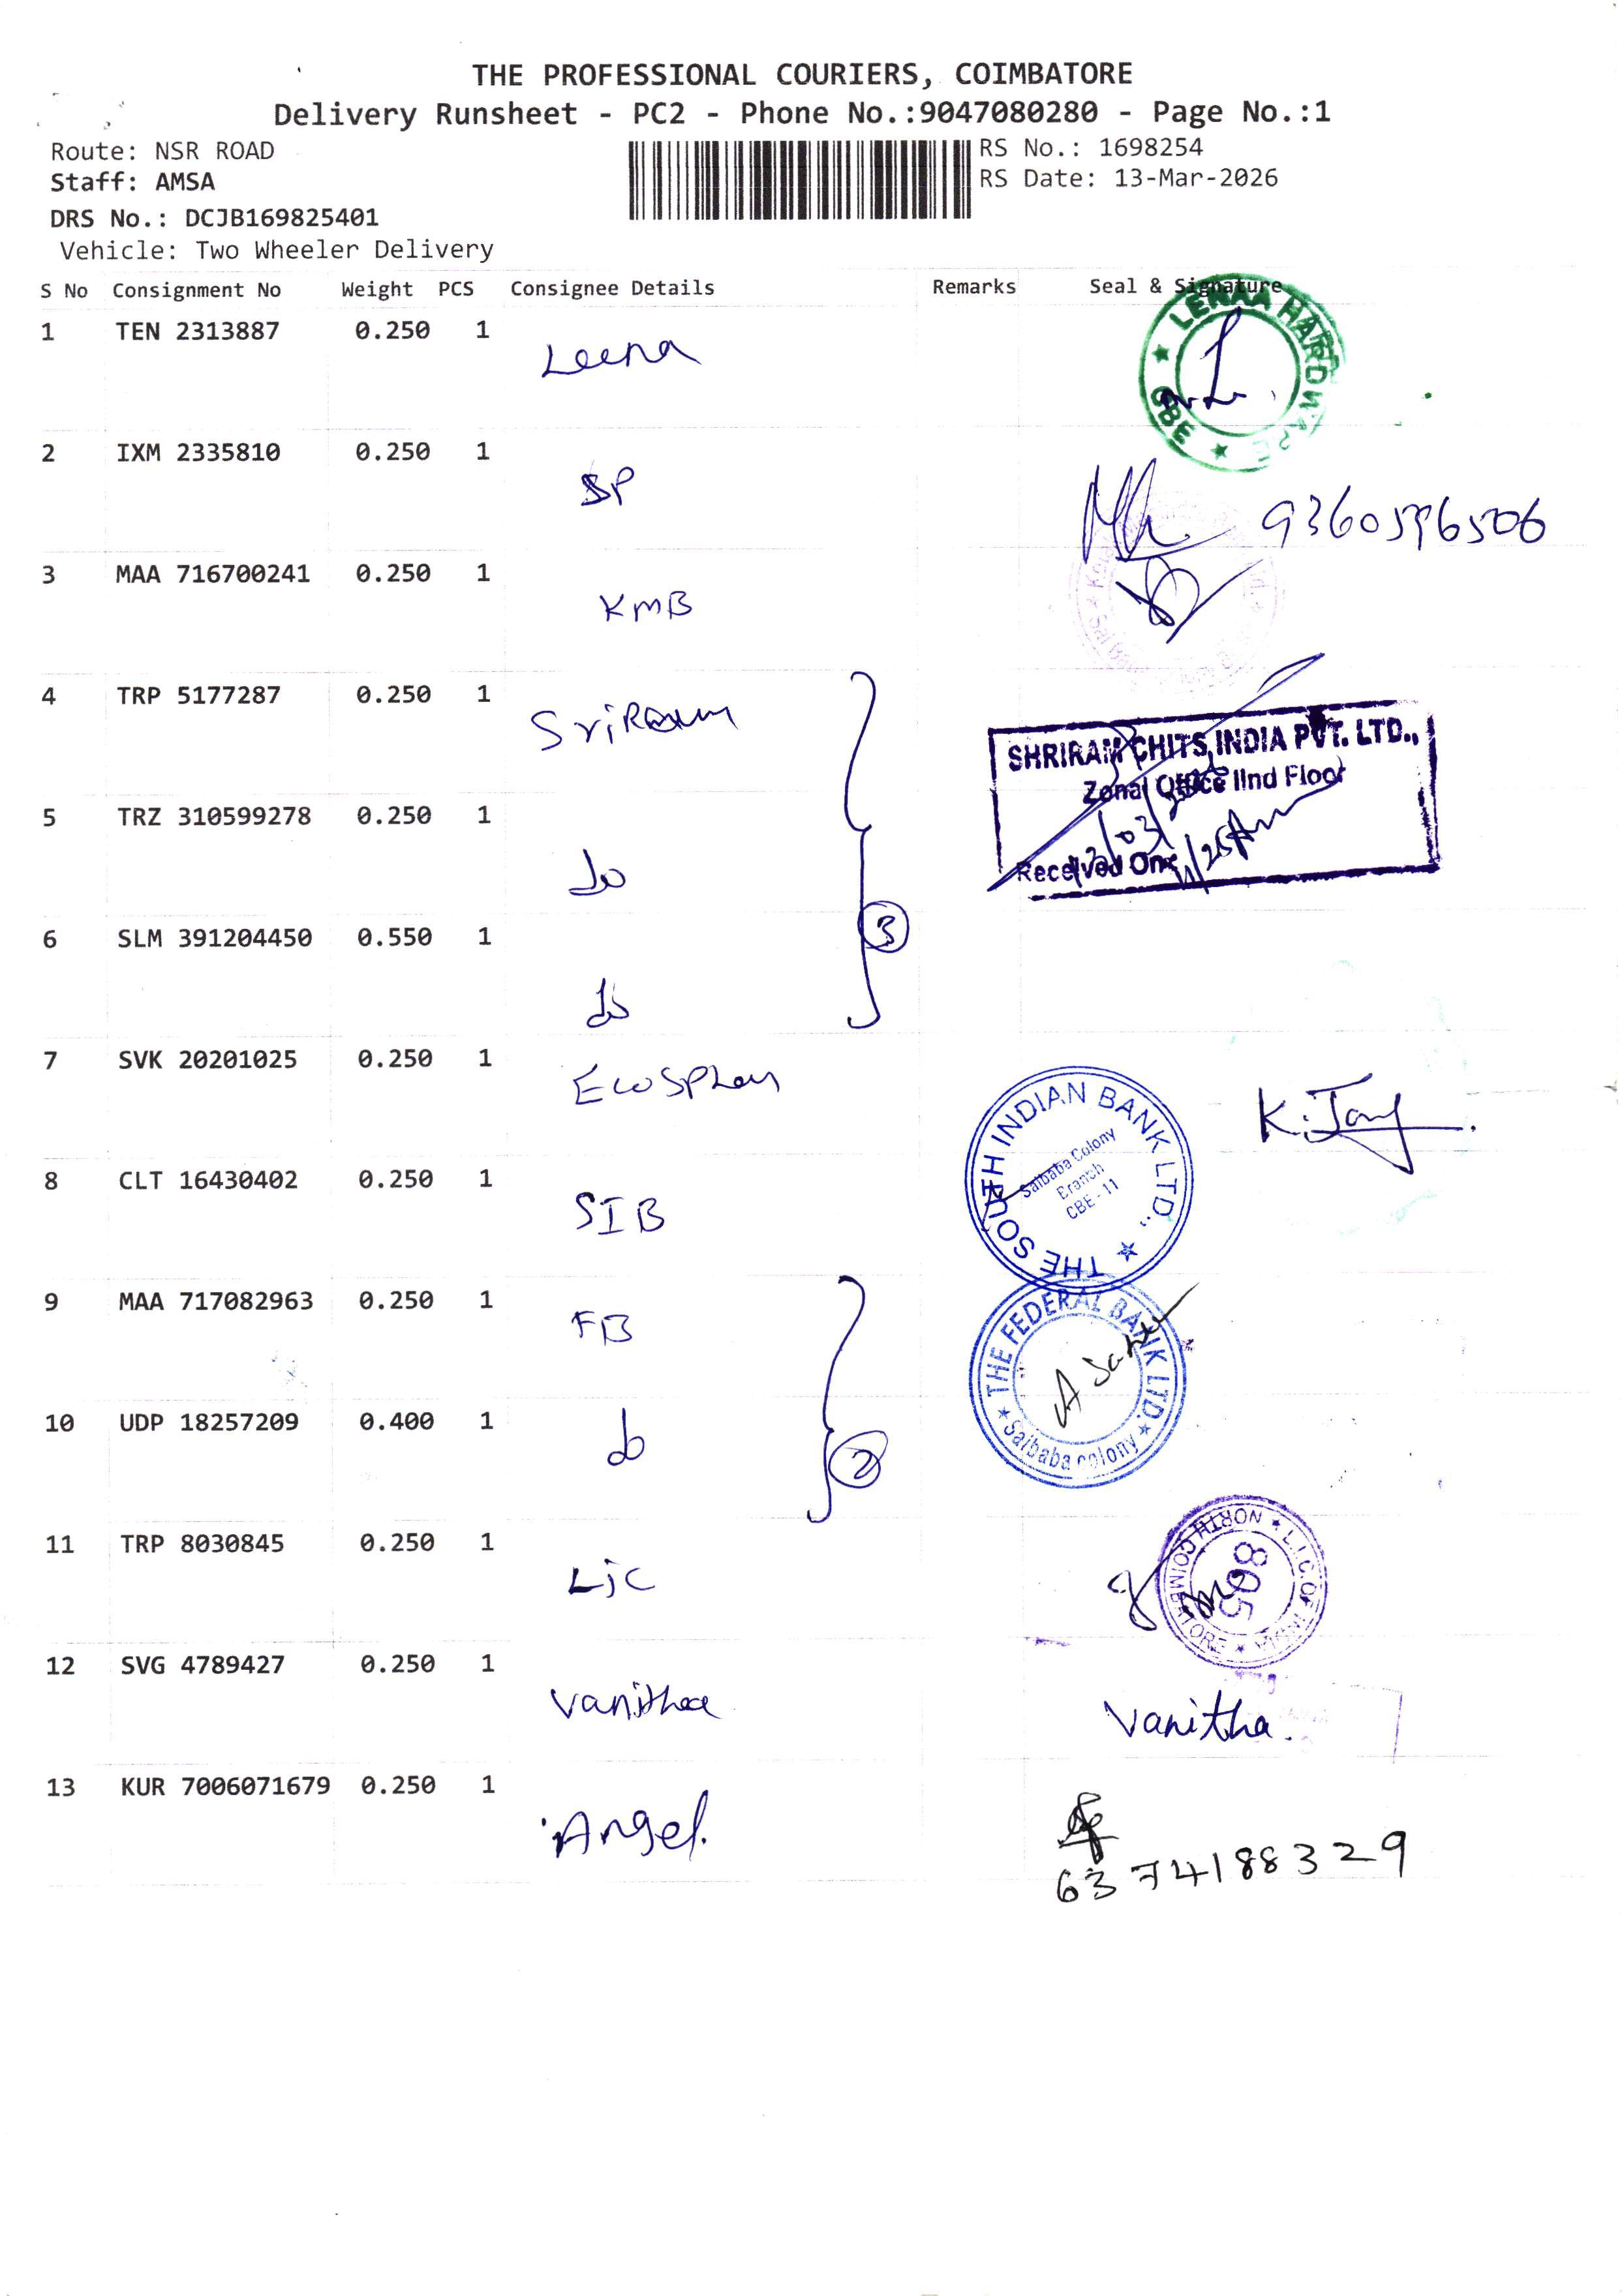 THE PROFESSIONAL COURIERS, COIMBATORE
Delivery Runsheet - PC2 - Phone No.:9047080280 - Page No.:1
Route: NSR ROAD
RS No.: 1698254
Staff: AMSA
RS Date: 13-Mar-2026
DRS No.: DCJB169825401
Vehicle: Two Wheeler Delivery
S No Consignment No Weight PCS Consignee Details Remarks Seal & Signature
1 TEN 2313887 0.250 1 Leena
LEENAA HARDWARE ★ CBE ★
2 IXM 2335810 0.250 1 SP
9360596506
3 MAA 716700241 0.250 1 KMB
4 TRP 5177287 0.250 1 SriRam
SHRIRAM CHITS INDIA PVT. LTD.,
Zonal Office IInd Floor
Received On:
5 TRZ 310599278 0.250 1 do
6 SLM 391204450 0.550 1 do
3
7 SVK 20201025 0.250 1
K.
8 CLT 16430402 0.250 1 SIB
THE SOUTH INDIAN BANK LTD., ★
Saibaba Colony
Branch
CBE - 11
9 MAA 717082963 0.250 1 FB
THE FEDERAL BANK LTD.
★ Saibaba colony ★
10 UDP 18257209 0.400 1 do
2
11 TRP 8030845 0.250 1 LIC
L.I.C. OF INDIA ★ NORTH COIMBATORE ★
805
12 SVG 4789427 0.250 1 Vanitha
Vanitha.
13 KUR 7006071679 0.250 1 Angel.
6374188329